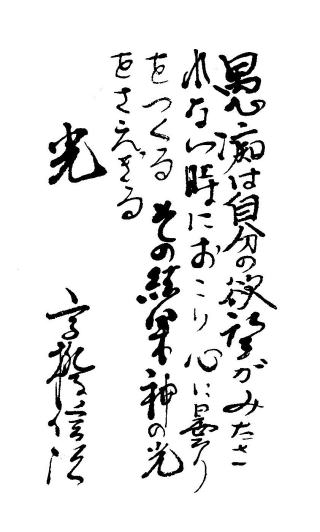 愚痴は自分の欲望がみたさ
れない時におこり 心に曇り
をつくる その結果神の光
をさえぎる
光
高橋信次